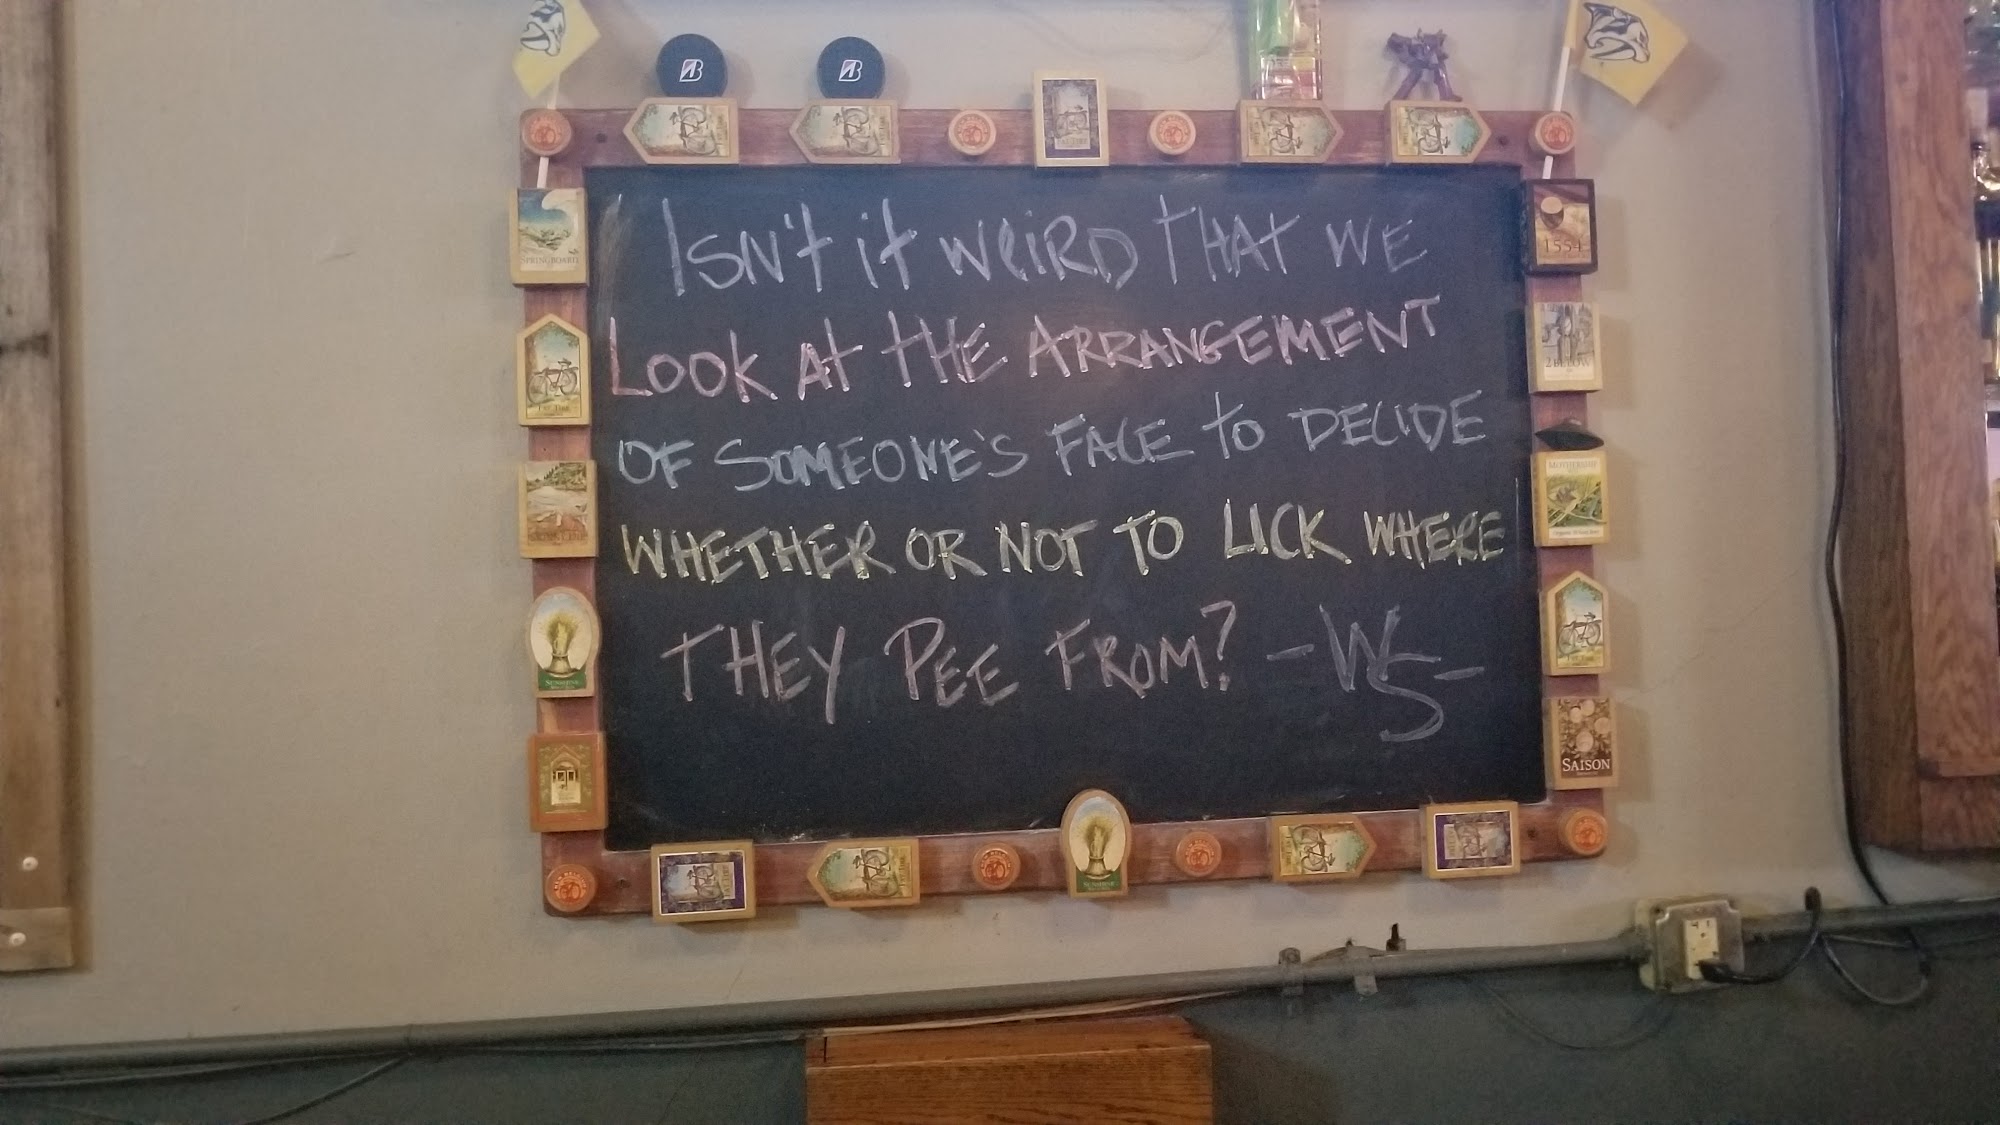 Isn't it weird that we
Look at the Arrangement
of someone's face to decide
whether or not to lick where
they pee from? -WS-
SPRINGBOARD
FAT TIRE
SUNSHINE
1554
2 BELOW
MOTHERSHIP
FAT TIRE
SAISON
SUNSHINE